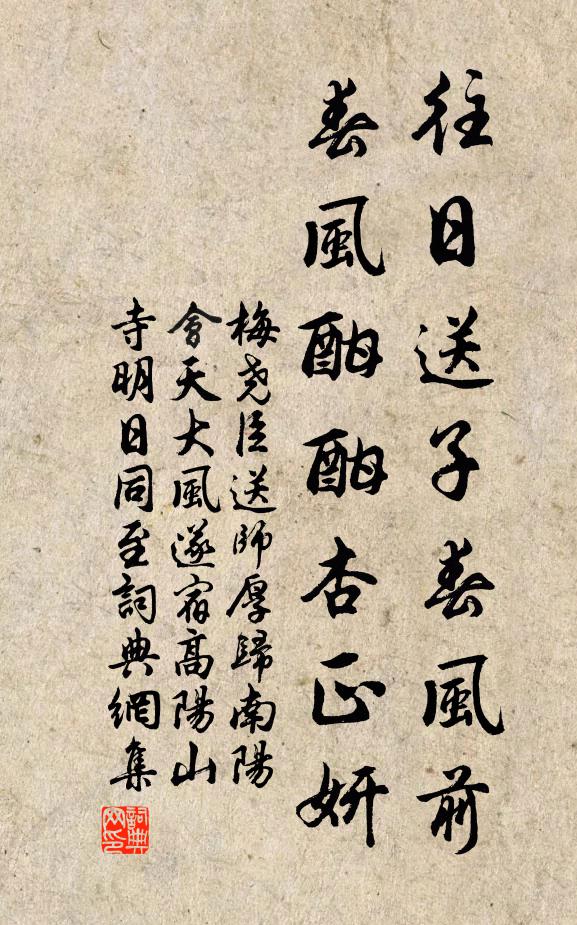 往日送子春風前
春風酣酣杏正妍
梅堯臣送師厚歸南陽
會天大風遂宿高陽山
寺明日同至詞典網集
詞典網印